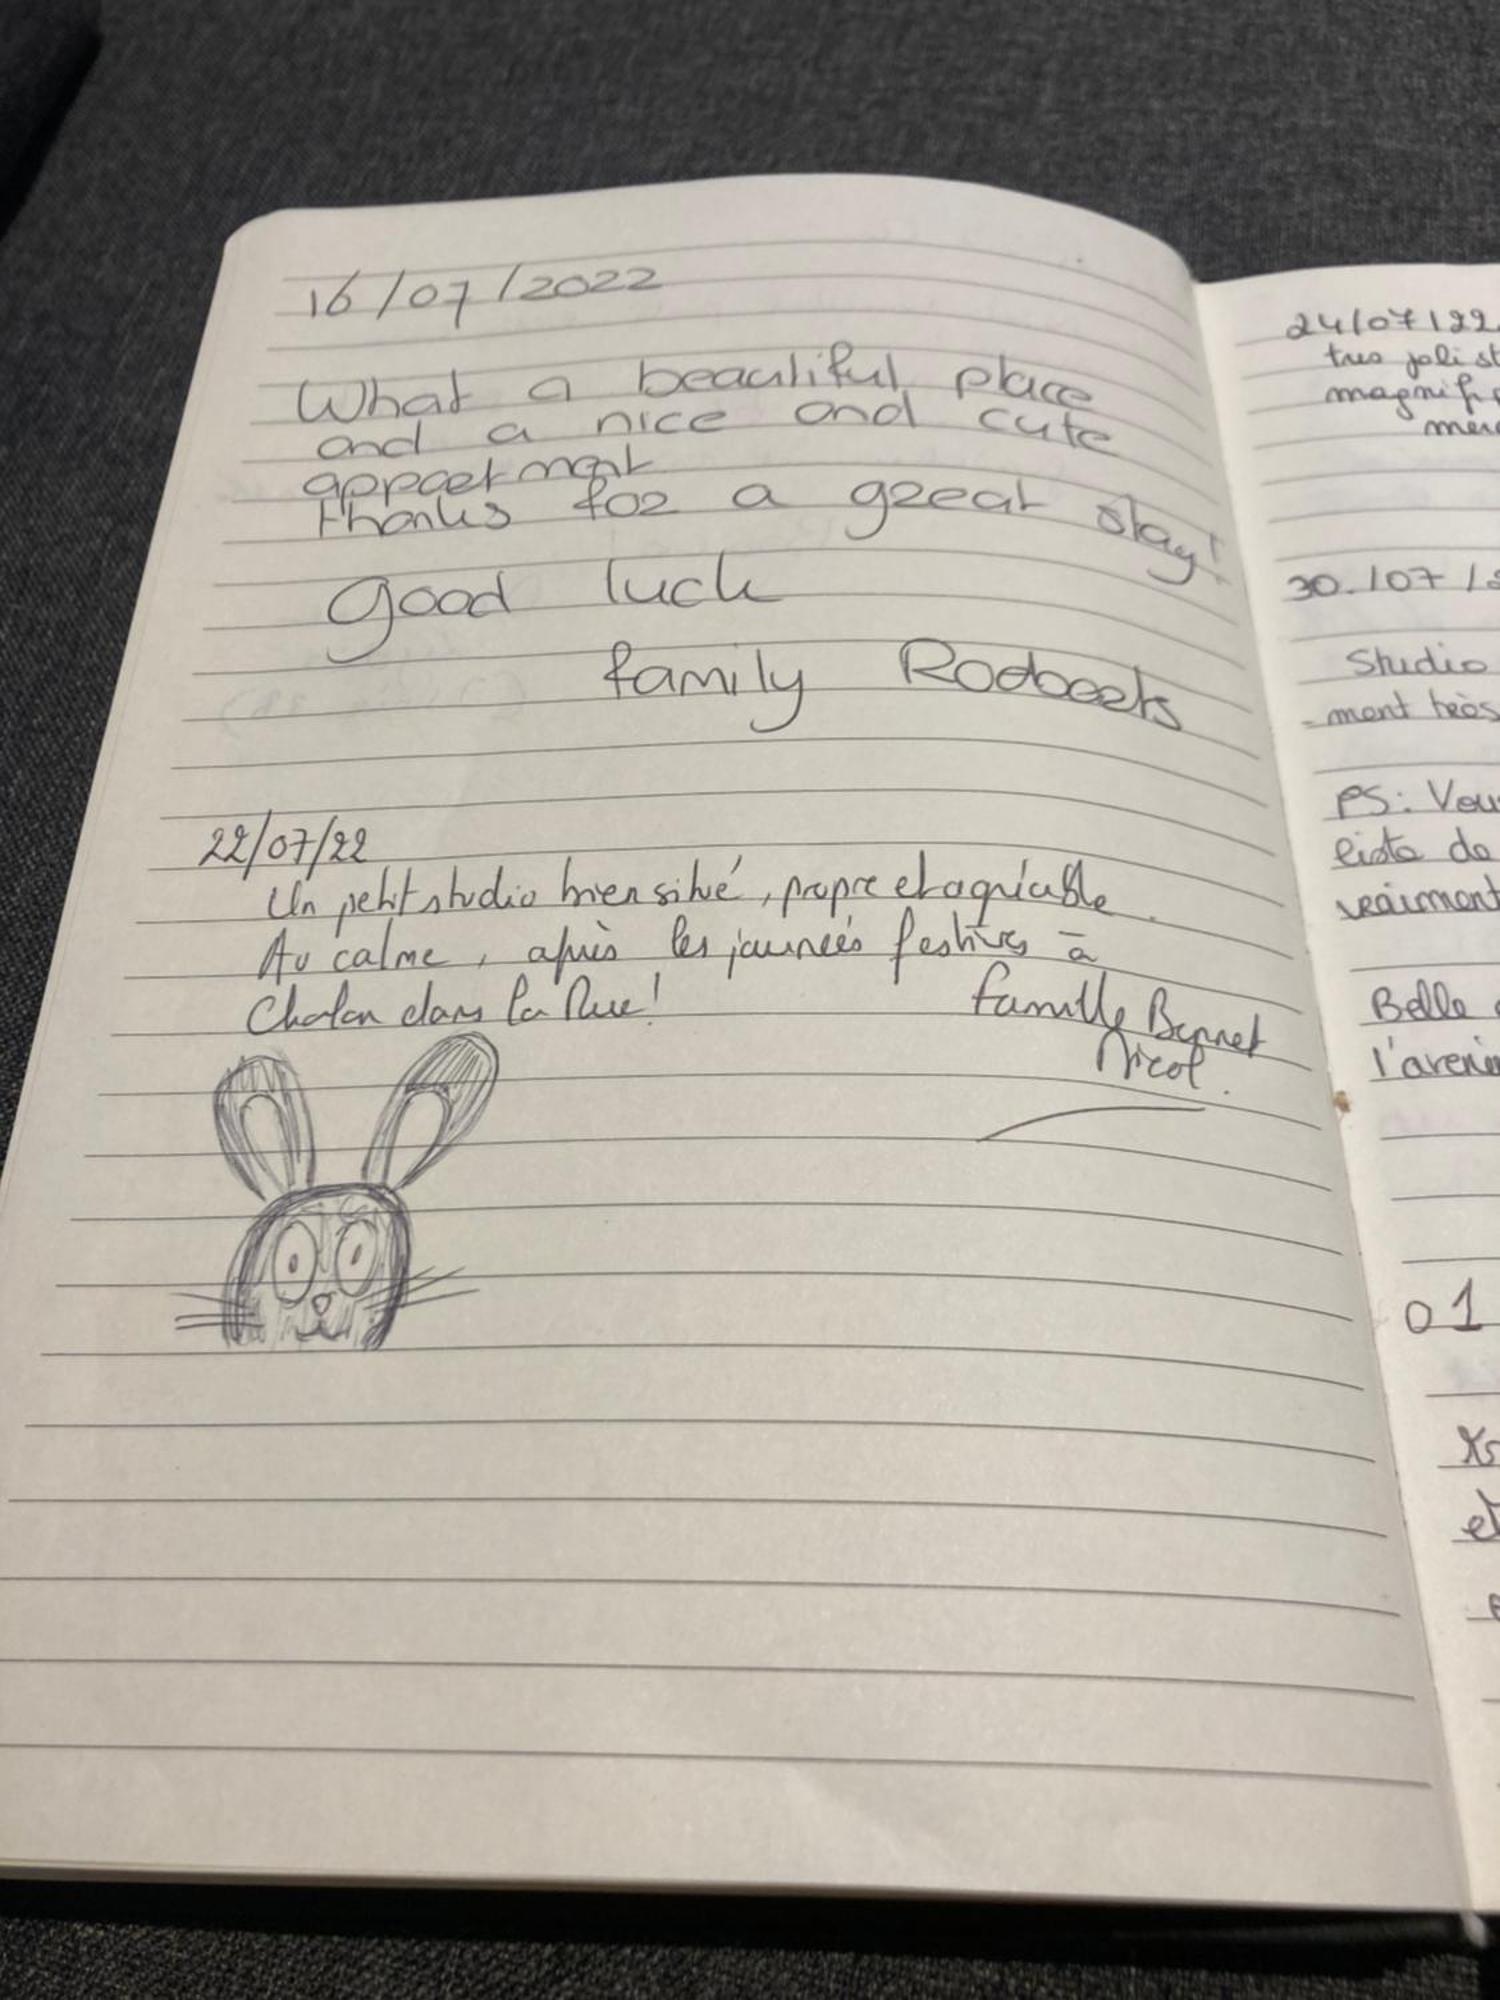 16/07/2022
What a beautiful place
and a nice and cute
appaetment
thanks for a great stay!
good luck
family Rodoets
22/07/22
Un petit studio bien situé, propre et agréable.
Au calme, après les journées festives à
Chalon dans la Rue!
famille Bonnet
Nicol.
24/07/22
tres joli st
magnifi
merc
30.107/2
Studio
-ment très
PS: Vous
liste de
vraiment
Belle
l'avenir
01
et